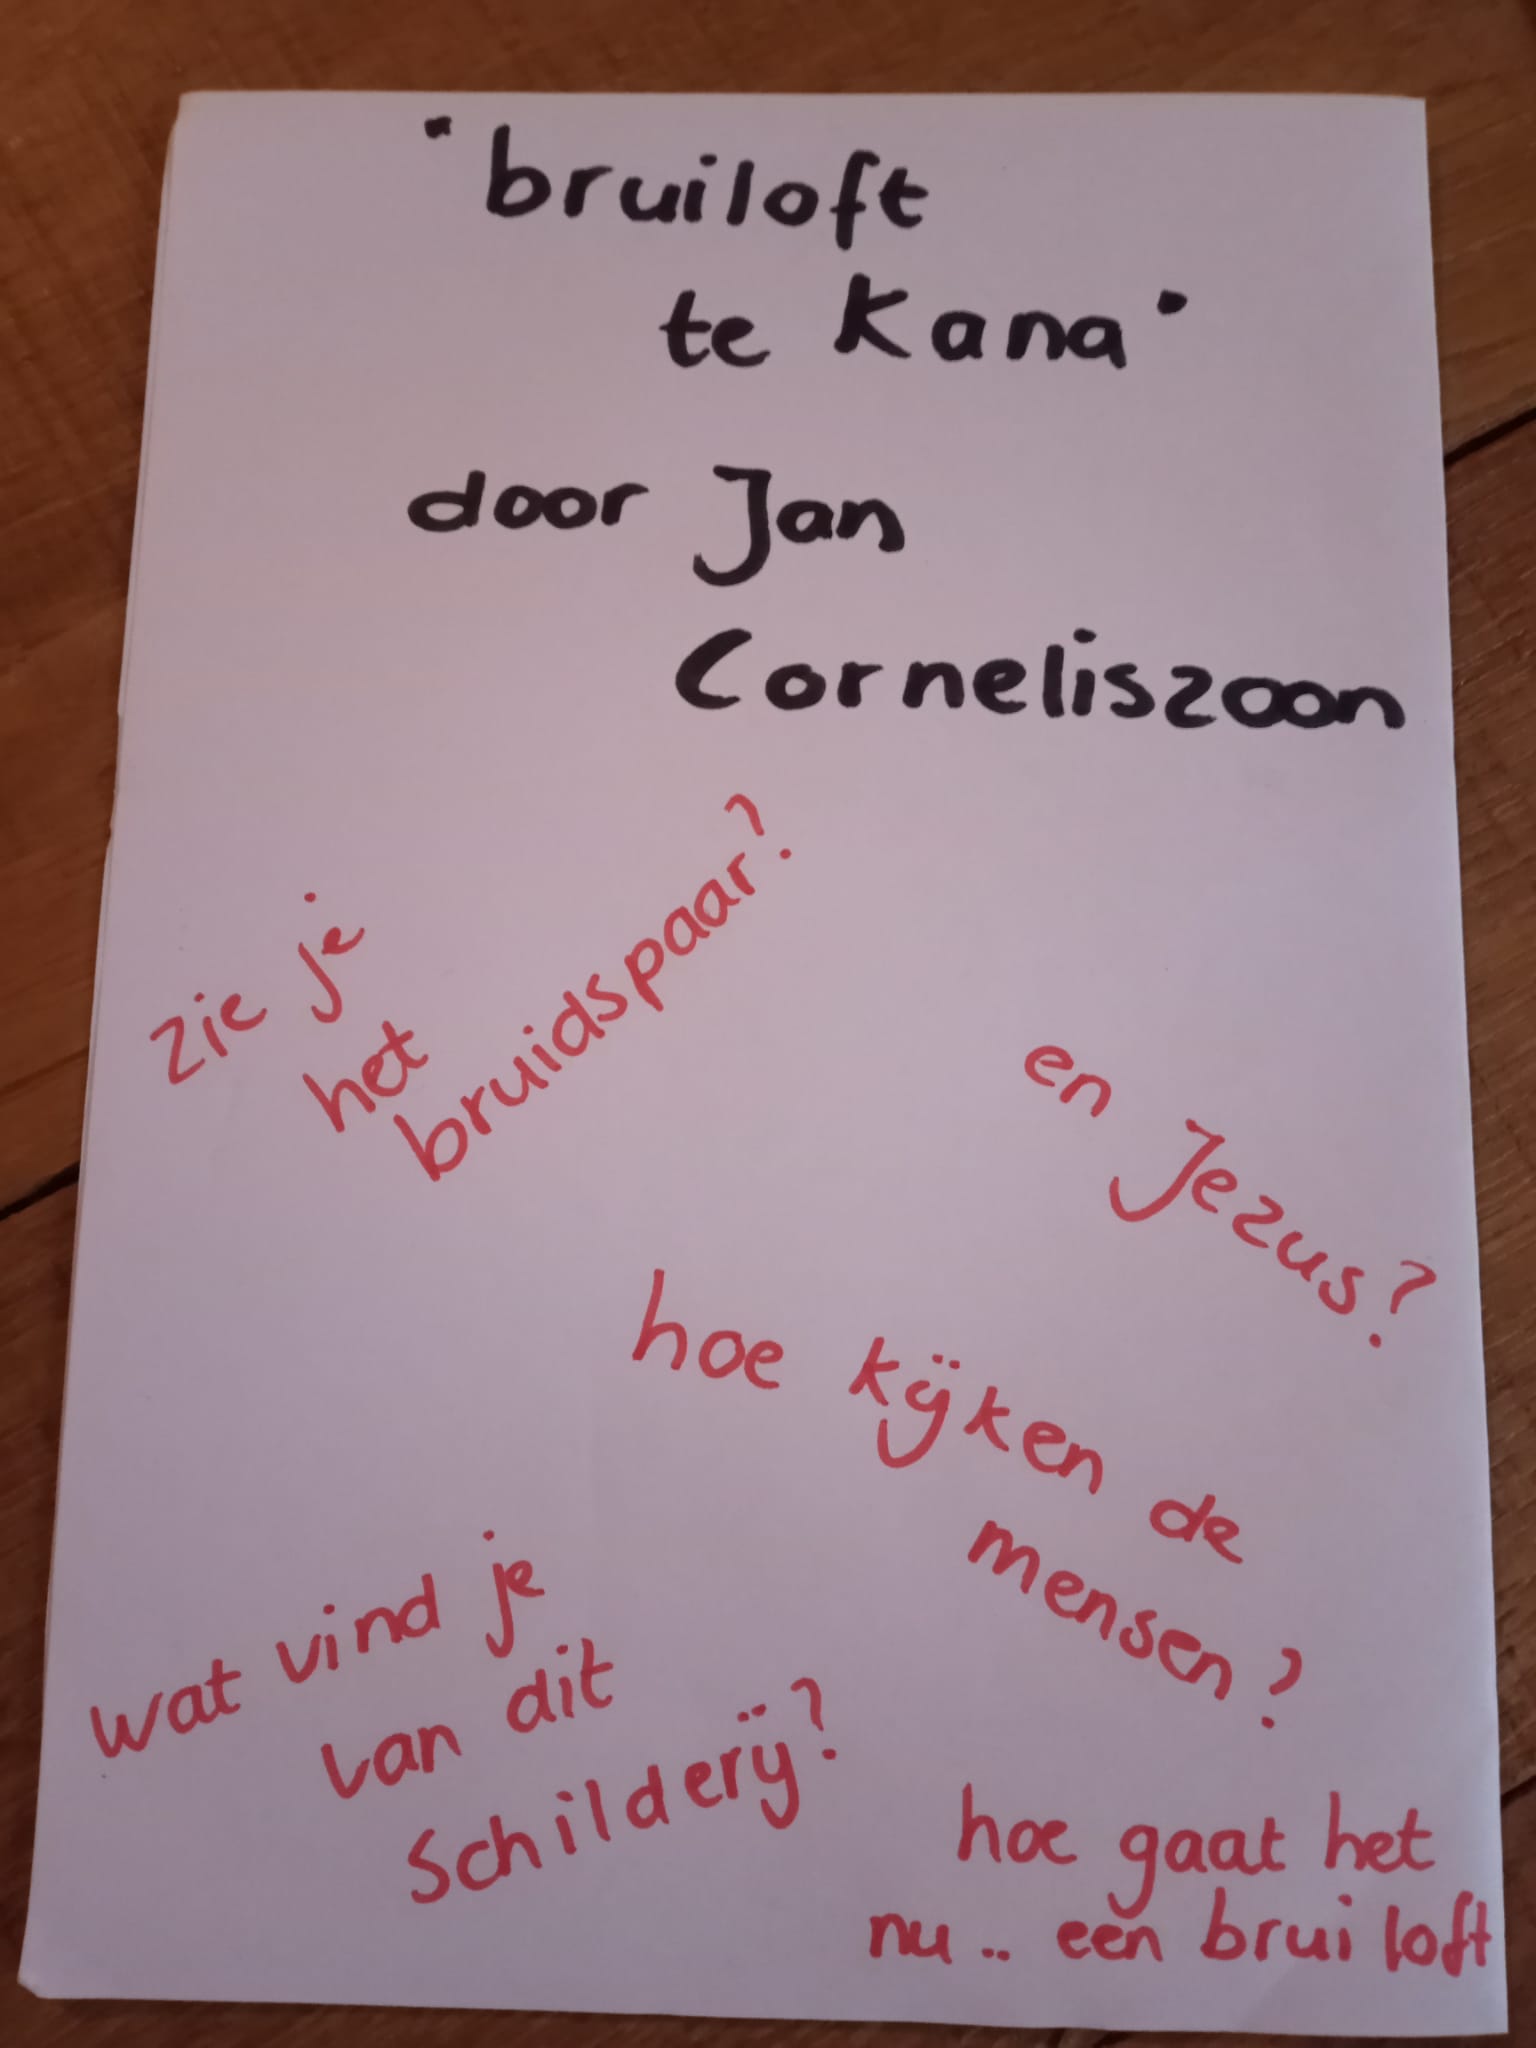 "bruiloft
te Kana"
door Jan
Corneliszoon
zie je
het
bruidspaar?
en Jezus?
hoe kijken de
mensen?
wat vind je
van dit
schilderij?
hoe gaat het
nu.. een bruiloft